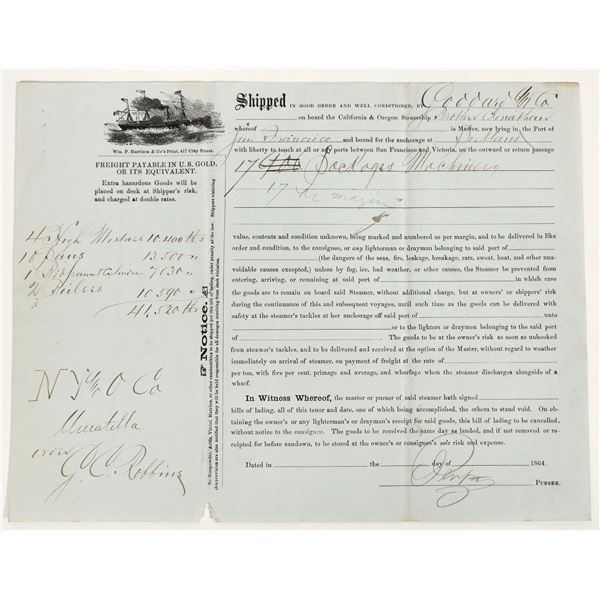 Wm. P. Harrison & Co's Print, 417 Clay Street.
FREIGHT PAYABLE IN U.S. GOLD,
OR ITS EQUIVALENT.
Extra hazardous Goods will be
placed on deck at Shipper's risk,
and charged at double rates.
10,400 lbs
10 Pans 13,500 "
1 7030 "
2 Boilers 10,590 "
41,520 lbs
Co
Umatilla
G. C. Robbins
Notice.
No Gunpowder, Acids, Vitriol, Matches, or other combustibles to be shipped per this bill of lading, under penalty of the law. Shippers violating
this provision are also notified that they will be held responsible for all damages resulting from such violation.
Shipped IN GOOD ORDER AND WELL CONDITIONED, BY Goddard & Co
on board the California & Oregon Steamship Brother Jonathan
whereof is Master, now lying in the Port of
San Francisco and bound for the anchorage at Portland
with liberty to touch at all or any ports between San Francisco and Victoria, on the outward or return passage
17 Packages Machinery
17
value, contents and condition unknown, being marked and numbered as per margin, and to be delivered in like
order and condition, to the consignee, or any lighterman or drayman belonging to said port of
(the dangers of the seas, fire, leakage, breakage, rats, sweat, heat, and other una-
voidable causes excepted,) unless by fog, ice, bad weather, or other causes, the Steamer be prevented from
entering, arriving, or remaining at said port of in which case
the goods are to remain on board said Steamer, without additional charge, but at owners' or shippers' risk
during the continuance of this and subsequent voyages, until such time as the goods can be delivered with
safety at the steamer's tackles at her anchorage off said port of unto
or to the lighters or draymen belonging to the said port
of The goods to be at the owner's risk as soon as unhooked
from steamer's tackles, and to be delivered and received at the option of the Master, without regard to weather
immediately on arrival of steamer, on payment of freight at the rate of
per ton, with five per cent. primage and average, and wharfage when the steamer discharges alongside of a
wharf.
In Witness Whereof, the master or purser of said steamer hath signed
bills of lading, all of this tenor and date, one of which being accomplished, the others to stand void. On ob-
taining the owner's or any lighterman's or drayman's receipt for said goods, this bill of lading to be cancelled,
without notice to the consignee. The goods to be received the same day as landed, and if not removed or re-
ceipted for before sundown, to be stored at the owner's or consignee's sole risk and expense.
Dated in the day of 1864.
PURSER.